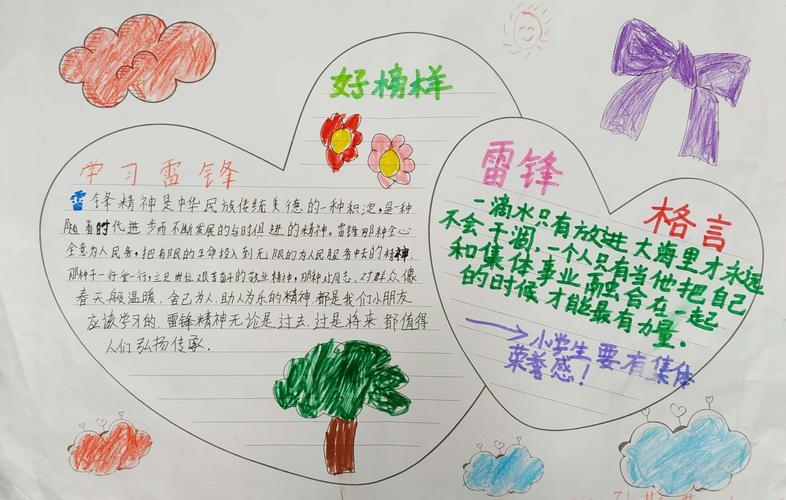 好榜样
学习雷锋
雷锋精神是中华民族传统美德的一种积淀,是一种
随着时代进步而不断发展的与时俱进的精神。雷锋那种全心
全意为人民务,把有限的生命投入到无限的为人民服务中去的精神,
那种干一行爱一行,立足岗位艰苦奋斗的敬业精神,那种对同志、对群众像
春天般温暖,舍己为人,助人为乐的精神都是我们小朋友
应该学习的,雷锋精神无论是过去,过是将来都值得
人们弘扬传承.
雷锋
格言
一滴水只有放进大海里才永远
不会干涸,一个人只有当他把自己
和集体事业融合在一起
的时候才能最有力量。
小学生要有集体
荣誉感!